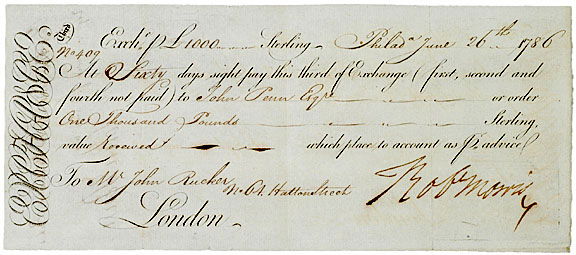 Third
Exch.ᵃ ₱ £1000 Sterling. Philad.ᵃ June 26th 1786
No 409
At Sixty days sight pay this third of Exchange (first, second and
fourth not paid) to John Penn Esqr. or order
One Thousand Pounds Sterling,
value Received which place to account as ₱ advice
To Mr. John Rucker
No 61. Hatton Street
London
Robt Morris